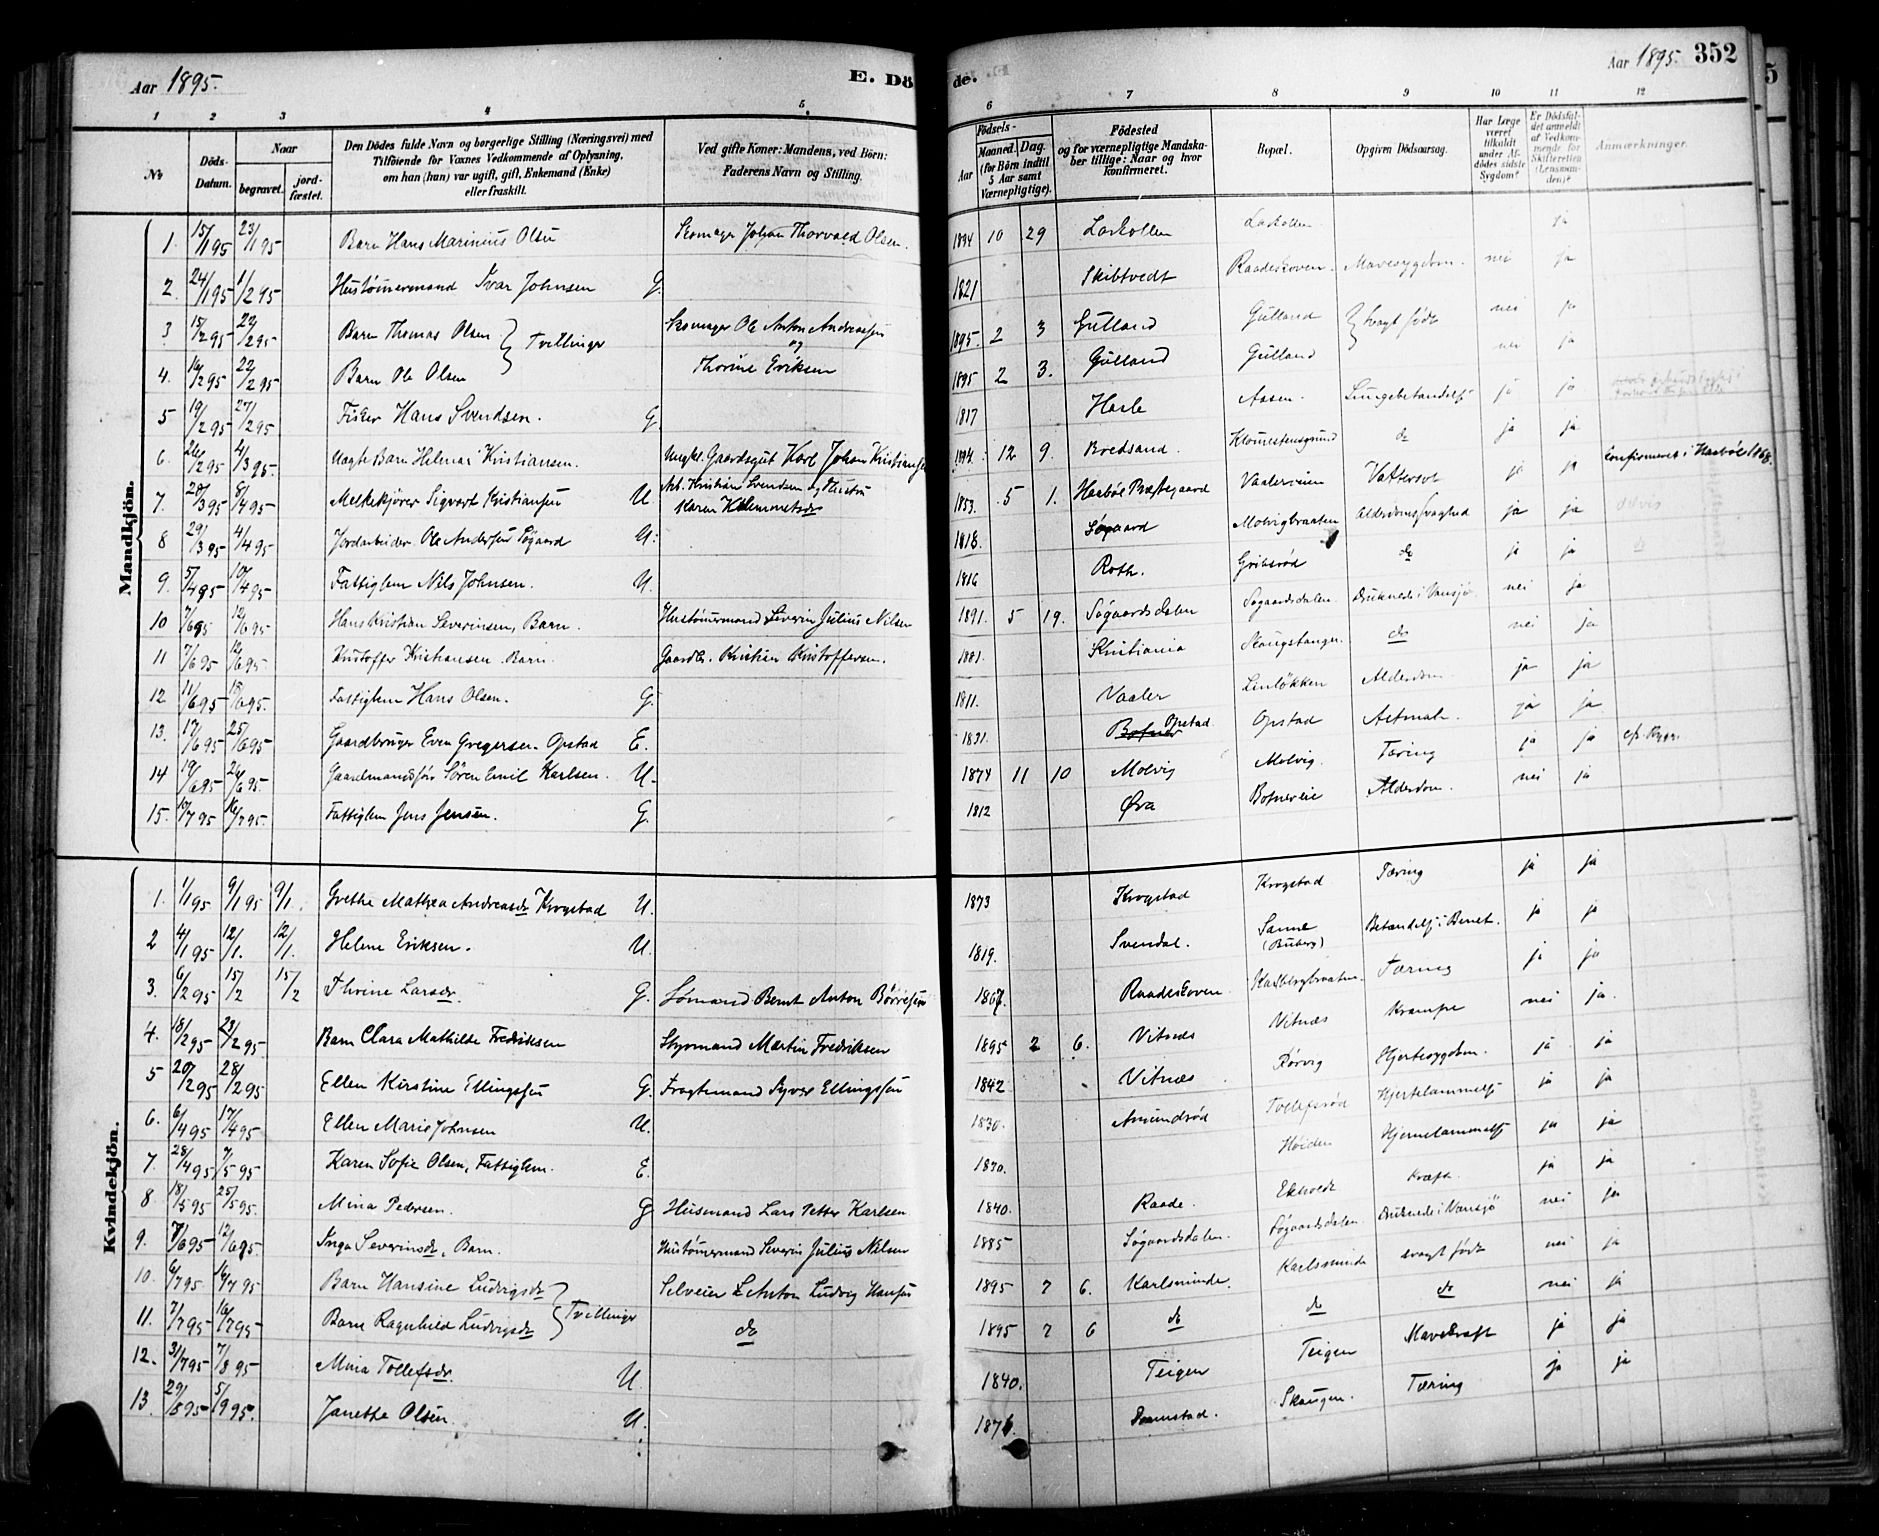 Aar 1895.
E. Dö
de.
Aar 1895. 352
1 2 3 4 5 6 7 8 9 10 11 12
No
Döds-Datum.
Naar
begravet.
jordfæstet.
Den Dödes fulde Navn og borgerlige Stilling (Næringsvei) med
Tilföiende for Voxnes Vedkommende af Oplysning,
om han (hun) var ugift, gift, Enkemand (Enke)
eller fraskilt.
Ved gifte Koner: Mandens, ved Börn:
Faderens Navn og Stilling.
Födsels-
Aar
Maaned. Dag.
(for Börn indtil
5 Aar samt
Værnepligtige).
Födested
og for værnepligtige Mandskaber tillige: Naar og hvor
konfirmeret.
Bopæl.
Opgiven Dödsaarsag.
Har Læge
været
tilkaldt
under Afdödes sidste
Sygdom?
Er Dödsfaldet anmeldt
af Vedkommende for
Skifteretten
(Lensmanden)?
Anmærkninger.
Mandkjön.
1. 15/1 95 23/1 95 Barn Hans Marinius Olsen Skomager Johan Thorvald Olsen. 1894 10 29 Larkollen Larkollen ja
2. 24/1 95 1/2 95 Hustømermand Ivar Johnsen G. 1821 Skibtvedt Raadeskoven. Mavesygdom. nei ja
3 15/2 95 22/2 95 Barn Thomas Olsen } Tvillinger Skomager Ole Anton Andreassen og 1895. 2 3 Gulland Gulland } svagt født nei ja
4. 16/2 95 22/2 95 Barn Ole Olsen Thorine Eriksen 1895 2 3. Gulland Gulland nei ja
5 19/2 95 27/2 95 Fisker Hans Svendsen. G. 1817 Hasle Aasen. Lungebetændelse ja ja
6. 26/2 95 4/3 95. Uægte Barn Hilmar Kristiansen. Ungkl. Gaardsgut Karl Johan Kristiansen 1894. 12 9. Bredsand. do ja ja
7. 28/3 95 8/4 95 Melkekjører Sigvart Kristiansen U Arb. Kristian Svendsen og Hustru Karen Klemmetsdr 1853. 5 1. Haabøl Præstegaard Vaalerveien Vattersot ja ja Confirmeret i Haabøl 1868.
8 29/3 95 4/4 95. Jordarbeider Ole Andersen Søgaard U. 1818. Søgaard Molvigbraaten Alderdomssvaghed ja ja
9. 5/4 95 10/4 95 Fattiglem Nils Johnsen. U. 1816 Roth. Gribsrød do ja ja
10 7/6 95 12/6 95 Hans Kristian Severinsen, Barn. Hustømermand Severin Julius Nilsen 1891. 5 19. Søgaardsdalen Søgaardsdalen. Druknede i Vansjø. nei ja
11 7/6 95 12/6 95. Kristoffer Kristiansen. Barn. Gaardbr. Kristian Kristoffersen. 1881. Kristiania do nei ja
12 11/6 95 18/6 95. Fattiglem Hans Olsen. G. 1811. Vaaler Linløkken Alderdom ja ja
13. 17/6 95 25/6 95 Gaardbruger Even Gregersen Opstad E. 1831. Opstad Opstad Astmah. ja ja
14 19/6 95 26/6 95. Gaardmandssøn Søren Emil Karlsen. U. 1874 11 10 Molvig Molvig. Tæring ja ja
15. 10/7 95 16/7 95. Fattiglem Jens Jensen. G. 1812 Øra Botnereie Alderdom. nei ja
Kvindekjön.
1. 1/1 95 9/1 95 9/1. Grethe Mathea Andreasdr Krogstad U. 1873 Krogstad Krogstad Tæring ja ja
2 4/1 95 12/1. 12/1. Helene Eriksen. U. 1819. Svendal. Sanne (Buberg) Betændelse i Benet. ja ja
3. 6/2 95 15/2 15/2 Thrine Larsdr. G. Sømand Bernt Anton Børresen 1867. Raadeskoven Karlbergbraaten. Tæring ja ja
4. 18/2 95 23/2 95. Barn Clara Mathilde Fredriksen Styrmand Martin Fredriksen 1895 2 6. Vitnæs Vitnæs Krampe nei ja.
5 20/2 95 28/2 95 Ellen Kirstine Ellingsen G. Fragtemand Syver Ellingsen 1842. Vitnæs Rørvig Hjertesygdom. ja ja
6. 6/4 95 17/4 95 Ellen Marie Johnsen U. 1830. Amundrød Tollefsrød Hjertelammelse ja ja
7. 28/4 95 7/5 95 Karen Sofie Olsen, Fattiglem. E. Høiden Hjernelammelse ja ja
8. 18/5 95 25/5 95. Mina Pedersen. G Husmand Lars Petter Karlsen 1840. Raade. Ekholdt Kræft ja ja
9. 7/6 95 12/6 95 Inga Severinsdr, Barn. Hustømermand Severin Julius Nilsen 1885 Søgaardsdalen. Søgaardsdalen. Druknede i Vansjø nei ja
10. 6/7 95 16/7 95 Barn Hansine Ludvigsdr } Tvillinger Selveier L. Anton Ludvig Hansen 1895 7 6. Karlsminde. Karlsminde svagt født nei ja
11. 7/7 95 16/7 95 Barn Ragnhild Ludvigsdr do 1895 7 6 do do do nei ja
12. 31/7 95 7/8 95 Mina Tollefsdr. U. 1840. Teigen Teigen Mavekræft ja ja
13. 29/8 95 5/9 95. Janette Olsen U. 1876. Skaugen. Tæring ja ja